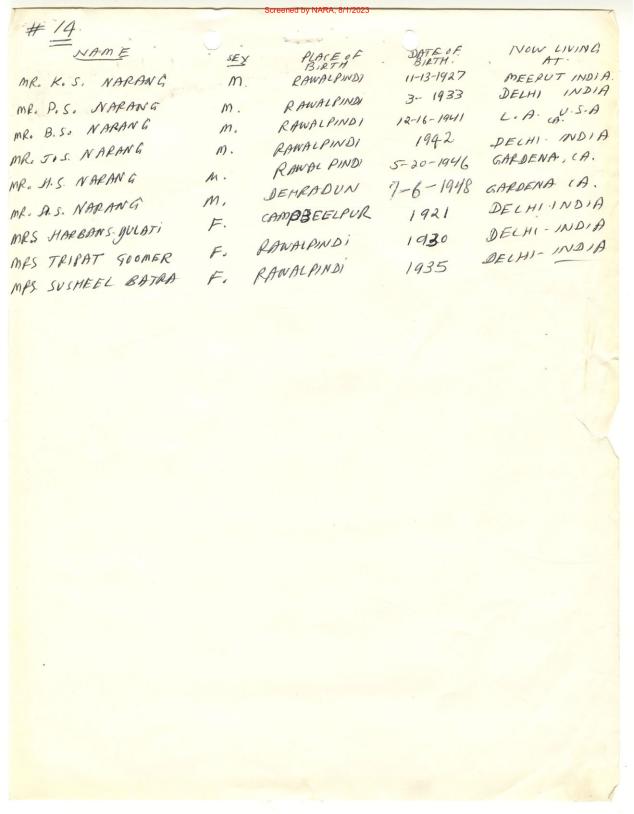 Screened by NARA, 8/1/2023
# 14
NAME SEX PLACE OF BIRTH DATE OF BIRTH. NOW LIVING AT.
MR. K.S. NARANG M. RAWALPINDI 11-13-1927 MEERUT INDIA.
MR. P.S. NARANG M. RAWALPINDI 3- 1933 DELHI INDIA
MR. B.S. NARANG M. RAWALPINDI 12-16-1941 L.A. CA. U.S.A
MR. J.S. NARANG M. RAWALPINDI 1942 DELHI. INDIA
MR. H.S. NARANG M. RAWALPINDI 5-20-1946 GARDENA, CA.
MR. A.S. NARANG M. DEHRADUN 7-6-1948 GARDENA CA.
MRS HARBANS GULATI F. CAMPBEELPUR 1921 DELHI-INDIA
MRS TRIPAT GOOMER F. RAWALPINDI 1930 DELHI-INDIA
MRS SUSHEEL BATRA F. RAWALPINDI 1935 DELHI-INDIA